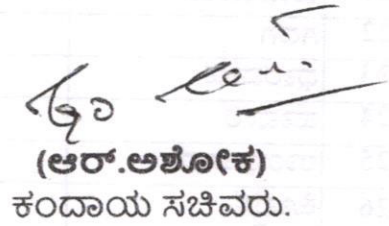 (ಆರ್.ಅಶೋಕ)
ಕಂದಾಯ ಸಚಿವರು.